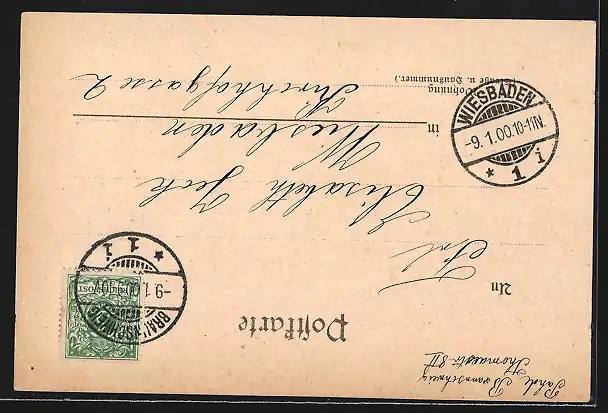 Postkarte
An
Frl.
Elisabeth
in
Wiesbaden
Wohnung
(Straße u. Hausnummer.)
Kirchhofgasse 2
Braunschweig
Thomaestr 8 II
WIESBADEN
-9.1.00.10-11N.
* 1 i
BRAUNSCHWEIG
-9.1.00
* 1 i
REICHSPOST
5